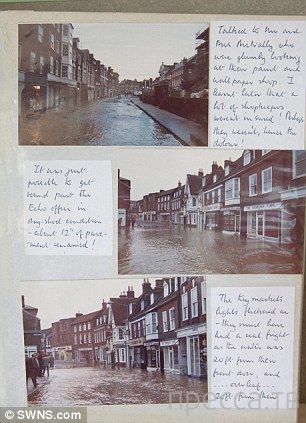 Talked to Mr and
Mrs McNally who
were glumly looking
at their paint and
wallpaper shop. I
learnt later that a
lot of shopkeepers
weren't insured! Perhaps
they weren't, hence the
dolour!
It was just
possible to get
round past the
Echo office in
dry-shod condition
- about 12" of pave-
ment unruined!
The Key markets
lights flickered on
- they must have
had a real fright
as the water was
20ft from their
front door, and
.....overleaf....
20ft from their
© SWNS.com